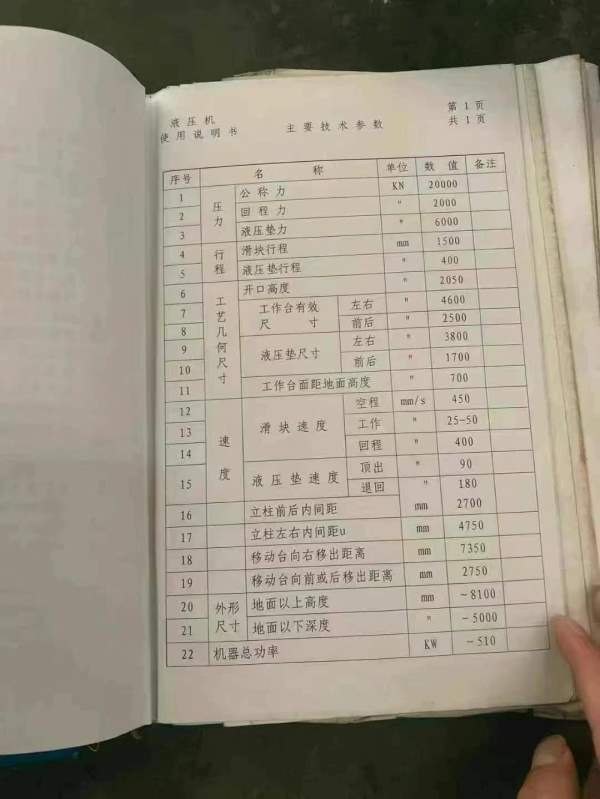 液压机
使用说明书
主要技术参数
第 1 页
共 1 页
序号 名称 单位 数值 备注
1 压力 公称力 KN 20000
2 回程力 " 2000
3 液压垫力 " 6000
4 行程 滑块行程 mm 1500
5 液压垫行程 " 400
6 工艺几何尺寸 开口高度 " 2050
7 工作台有效尺寸 左右 " 4600
8 前后 " 2500
9 液压垫尺寸 左右 " 3800
10 前后 " 1700
11 工作台面距地面高度 " 700
12 速度 滑块速度 空程 mm/s 450
13 工作 " 25-50
14 回程 " 400
15 液压垫速度 顶出 " 90
退回 " 180
16 立柱前后内间距 mm 2700
17 立柱左右内间距u mm 4750
18 移动台向右移出距离 mm 7350
19 移动台向前或后移出距离 mm 2750
20 外形尺寸 地面以上高度 mm ~8100
21 地面以下深度 " ~5000
22 机器总功率 KW ~510